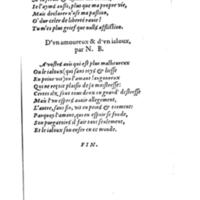 Ie l'ayme aussi, plus que ma propre vie,
Mais declarer n'ose ma passion,
O dur celer de liberté rauie!
Tu m'es plus grief que nulle affliction.
D'vn amoureux & d'vn ialoux,
par N. B.
A vostre auis qui est plus malheureux
Ou le ialoux qui sans repos & liesse
En peine vit, ou l'amant langoureux
Qui ne reçoit plaisir de sa maistresse?
Certes dis, sont tous deux en grand' destresse
Mais l'vn espere auoir allegement,
L'autre, sans fin, vit en peine & tourment:
Parquoy l'amant, qui en espoir se fonde,
Son purgatoire il fait tout seulement,
Et le ialoux son enfer en ce monde.
FIN.